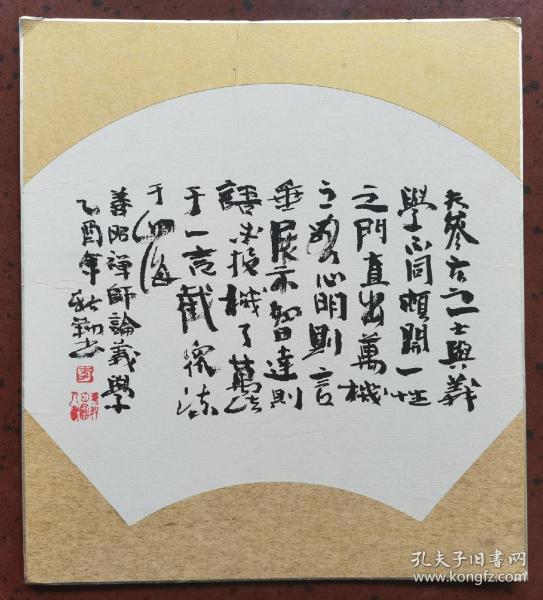 夫參玄之士與義
學不同頓開一性
之門直出萬機
之路心明則言
垂展示智達則
語必投機了萬法
于一言截衆流
于四海
善昭禪師論義學
乙酉年
孔夫子旧书网
www.kongfz.com